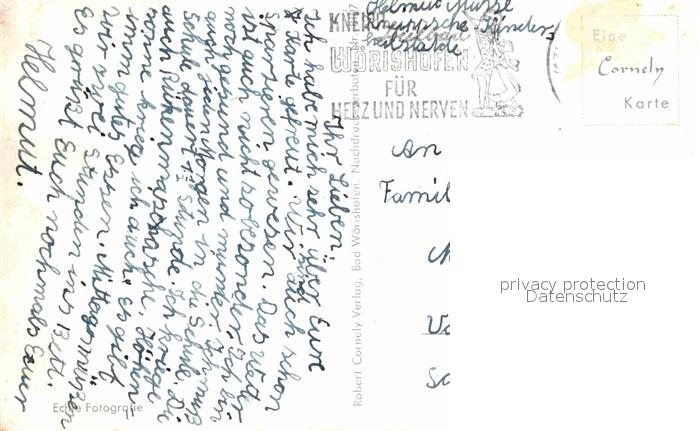 Ihr Lieben,
Ich habe mich sehr über Eure
Karte gefreut. Wir sind
auch schon
Spazieren gewesen. Das Wetter
ist auch nicht so besonder. Ich bin
noch gesund und munter. Ich muß
auch jeden Morgen in die Schule. Die
Schule dauert 1½ Stunde. Ich kriege
auch Rückenmassage. Höhen-
sonne krieg ich auch. Es gibt
immer gutes Essen. Mittags müßen
wir zwei Stunden ins Bett.
Es grüßt Euch nochmals Euer
Helmut.
Echte Fotografie
Robert Cornely Verlag, Bad Wörishofen. Nachdruck verboten
Helmut
Kneippsche Kinder-
heilstätte
WÖRISHOFEN
FÜR
HERZ UND NERVEN
Eine
Cornely
Karte
An
Famil
privacy protection
Datenschutz